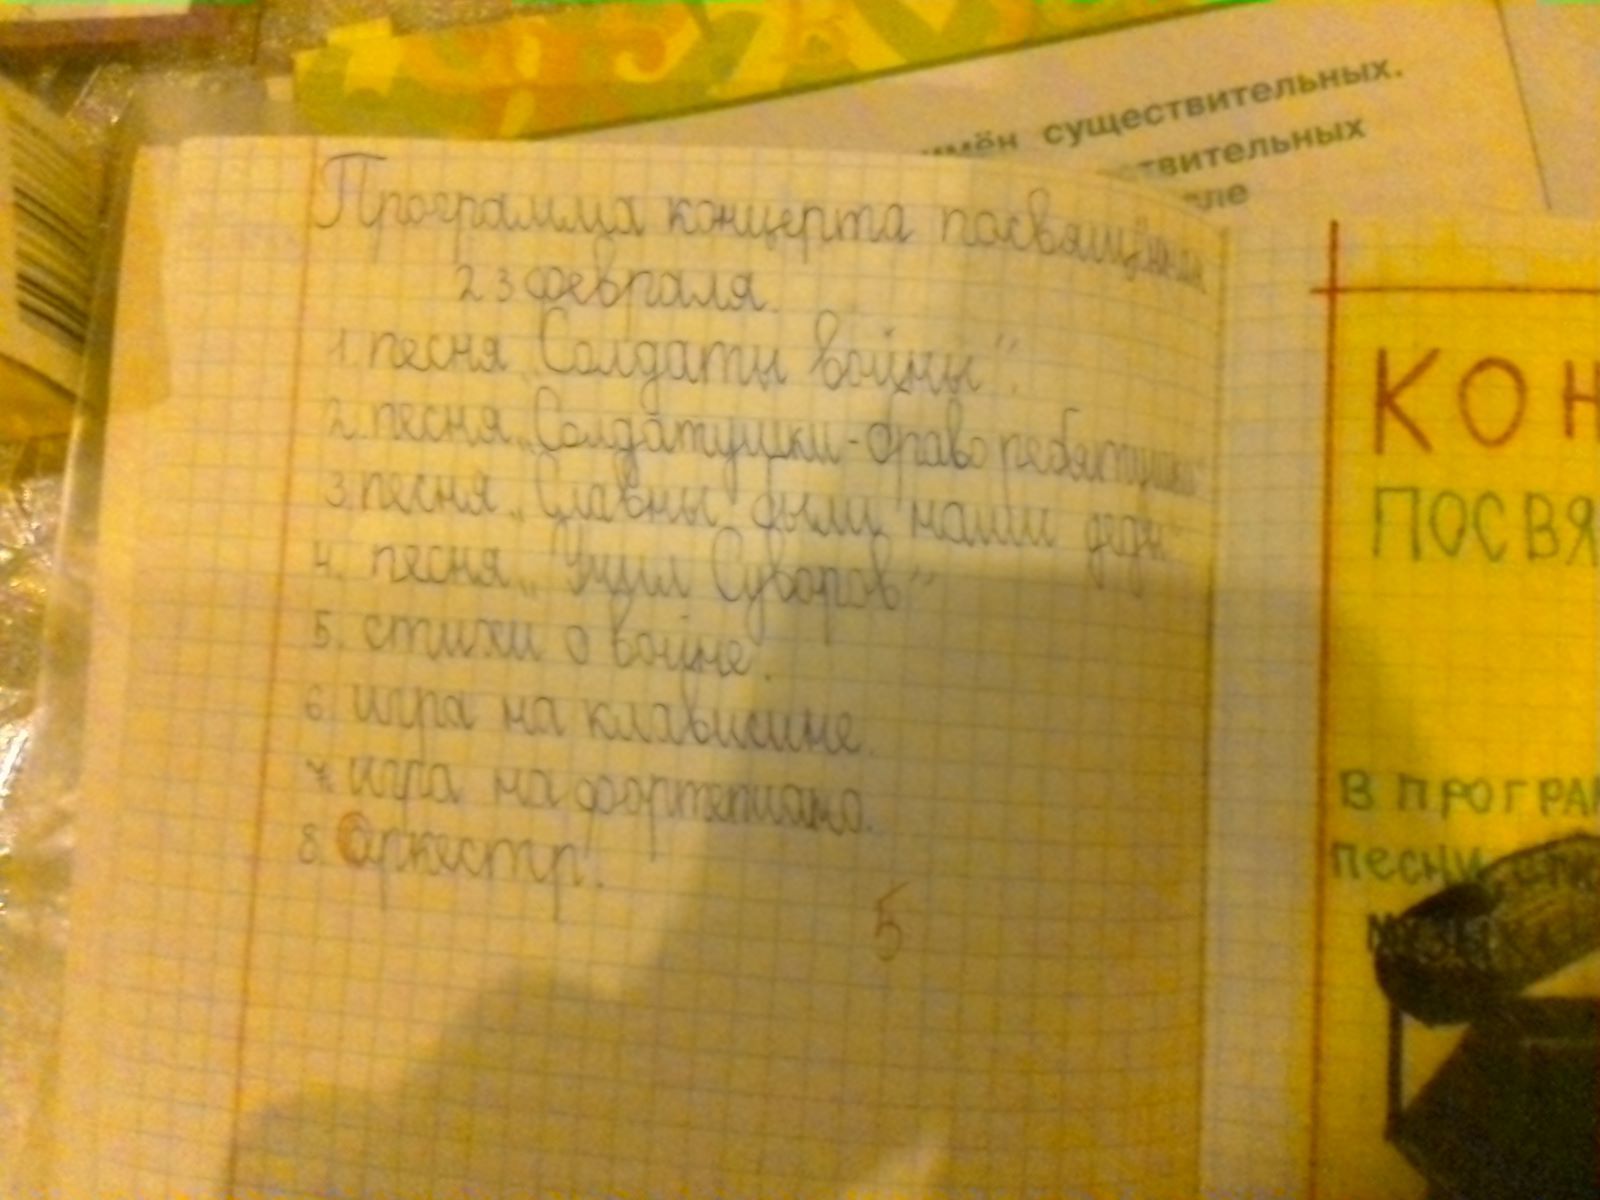 имён существительных.
ствительных
Программа концерта посвящённая
23 февраля.
1. песня „Солдаты войны".
2. песня „Солдатушки-браво ребятушки"
3. песня „Славны были наши деды"
4. песня „Учил Суворов"
5. стихи о войне.
6. игра на клависине.
7. игра на фортепиано.
8. Оркестр.
5
КОН
ПОСВЯ
В ПРОГРАМ
песни, сти
музык